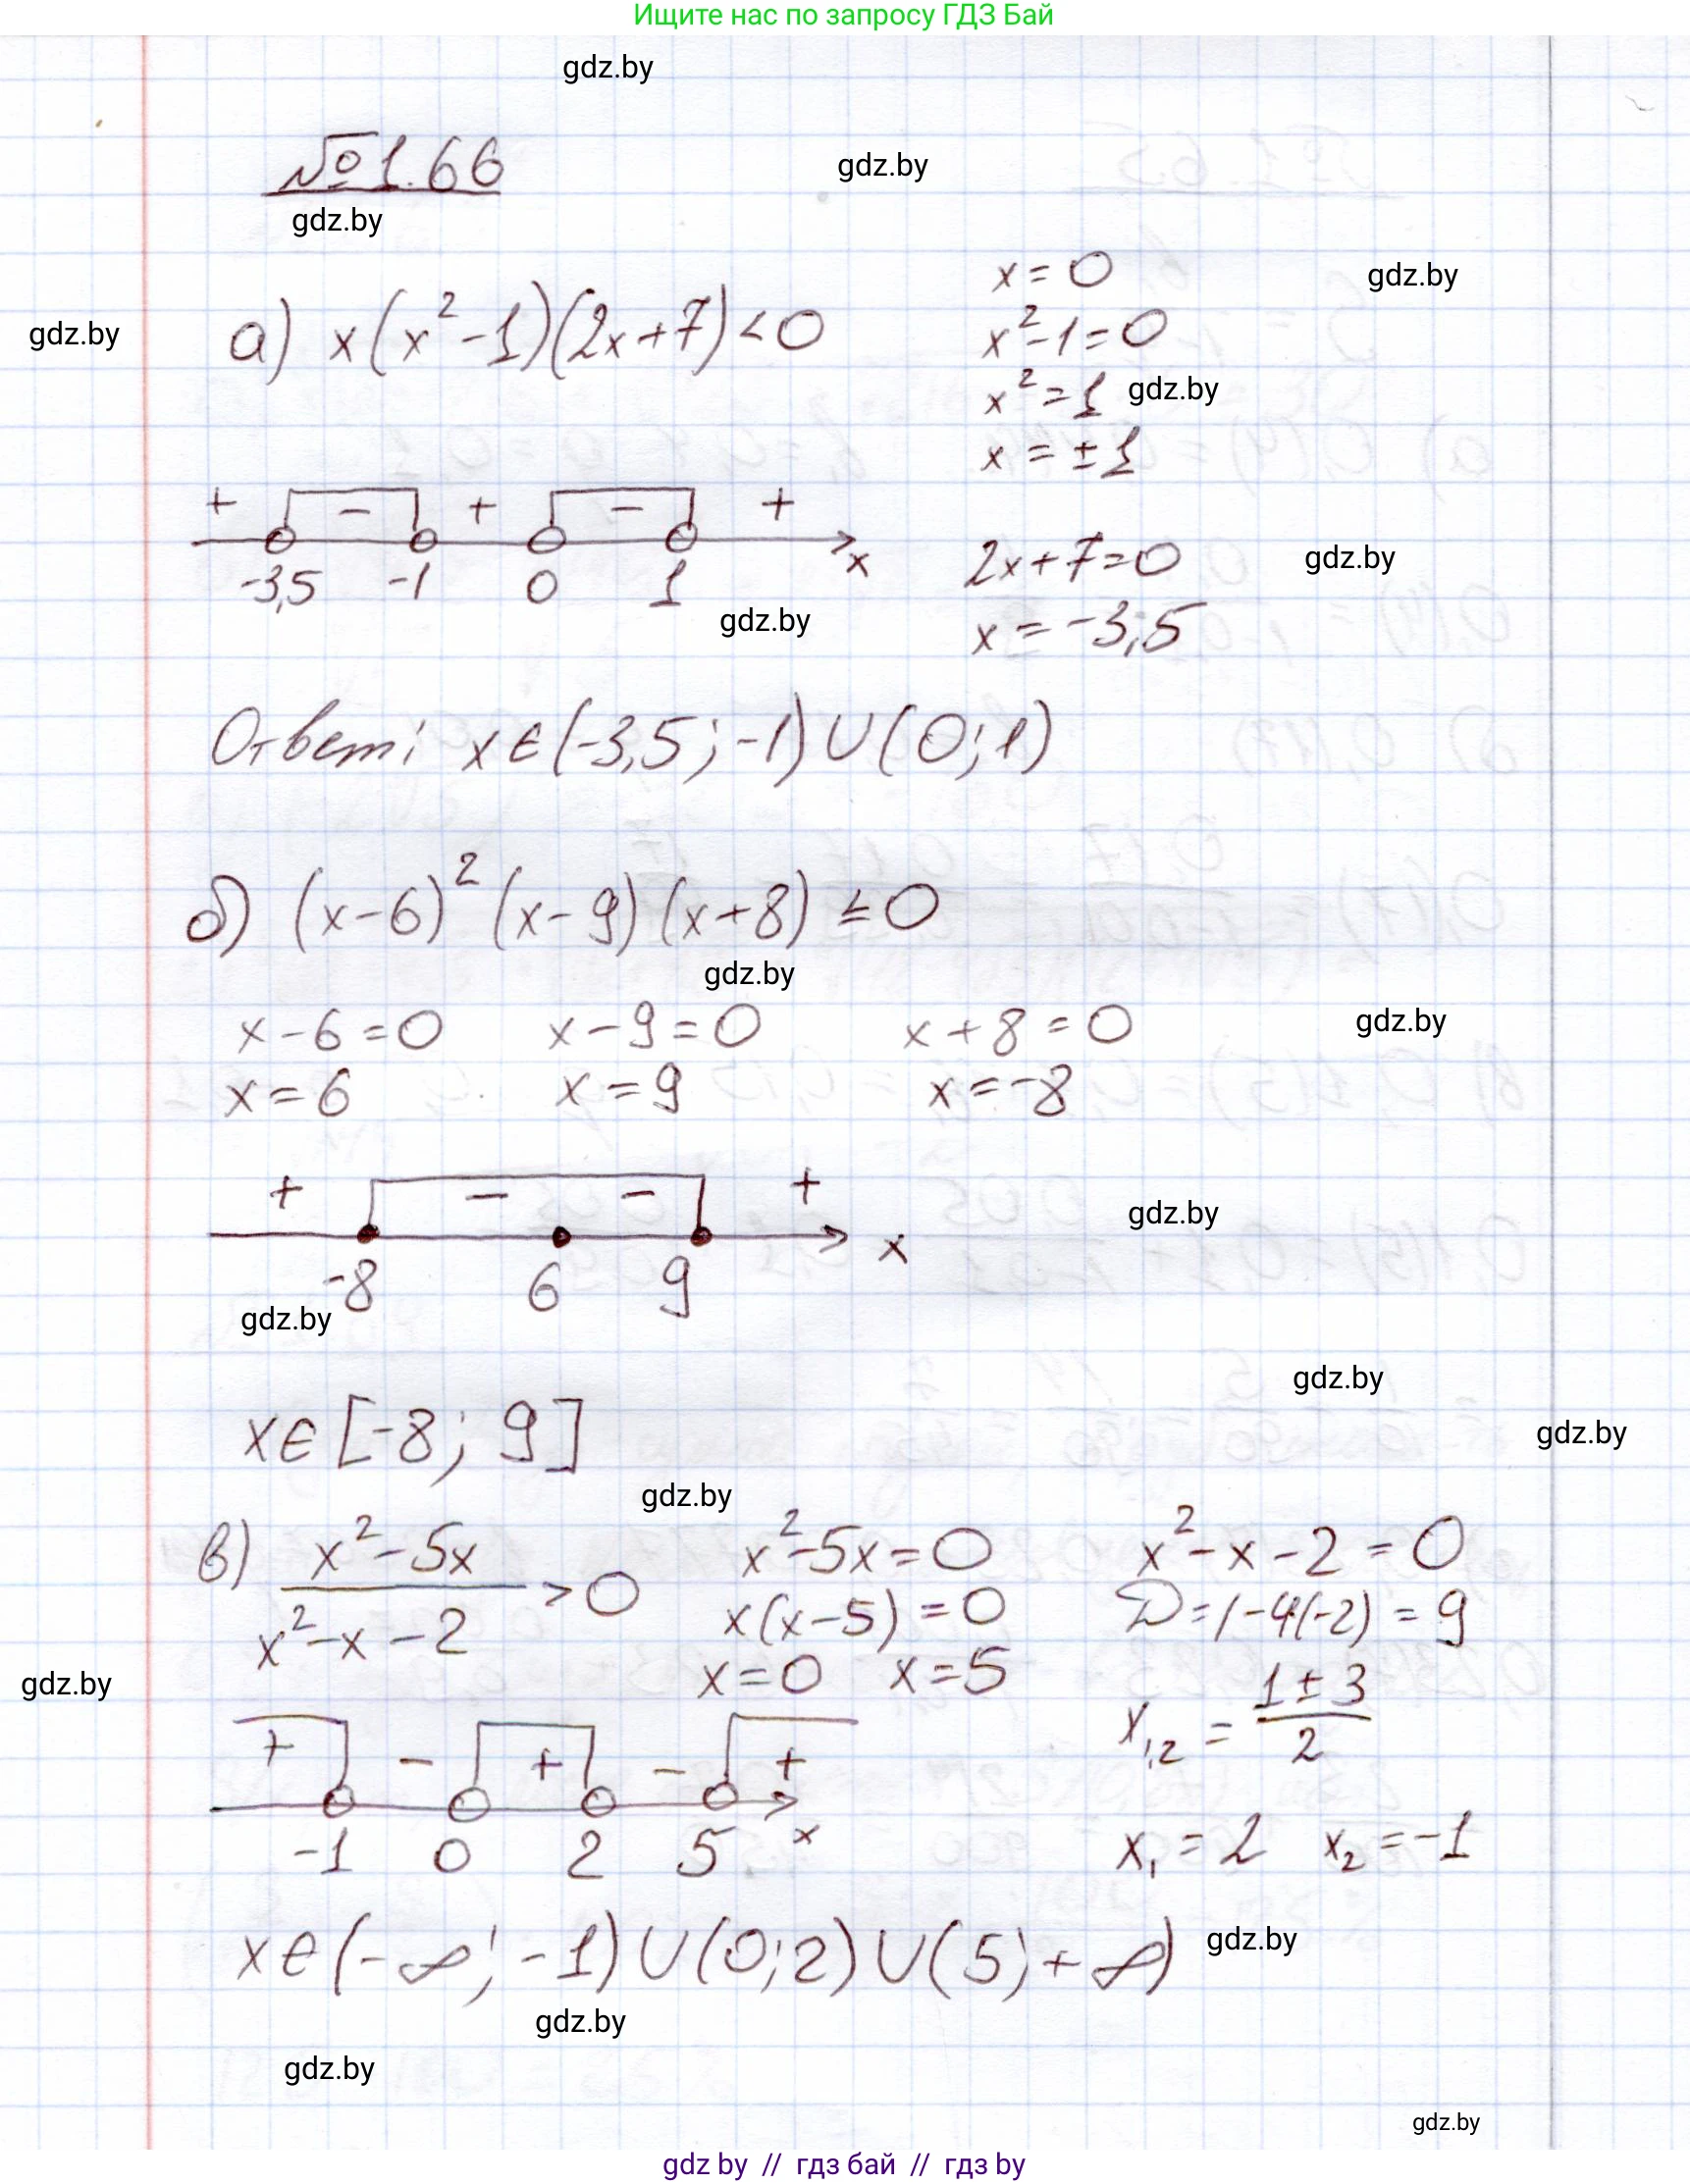 Ищите нас по запросу ГДЗ Бай
gdz.by
№1.66
gdz.by
gdz.by
x = 0
gdz.by
а) x(x²-1)(2x+7)<0
gdz.by
x²-1=0
x²=1
gdz.by
x = ±1
+ - + - +
-3,5 -1 0 1 x
gdz.by
2x+7=0
gdz.by
x = -3,5
Ответ: x∈(-3,5; -1)∪(0;1)
б) (x-6)²(x-9)(x+8) ≤0
gdz.by
x-6=0 x-9=0 x+8=0
gdz.by
x=6 x=9 x=-8
+ - - +
gdz.by
-8 6 9 x
gdz.by
gdz.by
x∈[-8; 9]
gdz.by
gdz.by
в) (x²-5x)/(x²-x-2) >0
x²-5x=0
x(x-5)=0
x=0 x=5
x²-x-2=0
D=1-4(-2)=9
x₁,₂ = (1±3)/2
x₁=2 x₂=-1
gdz.by
+ - + - +
-1 0 2 5 x
x∈(-∞; -1)∪(0;2)∪(5;+∞)
gdz.by
gdz.by
gdz.by
gdz.by
gdz by // гдз бай // гдз by